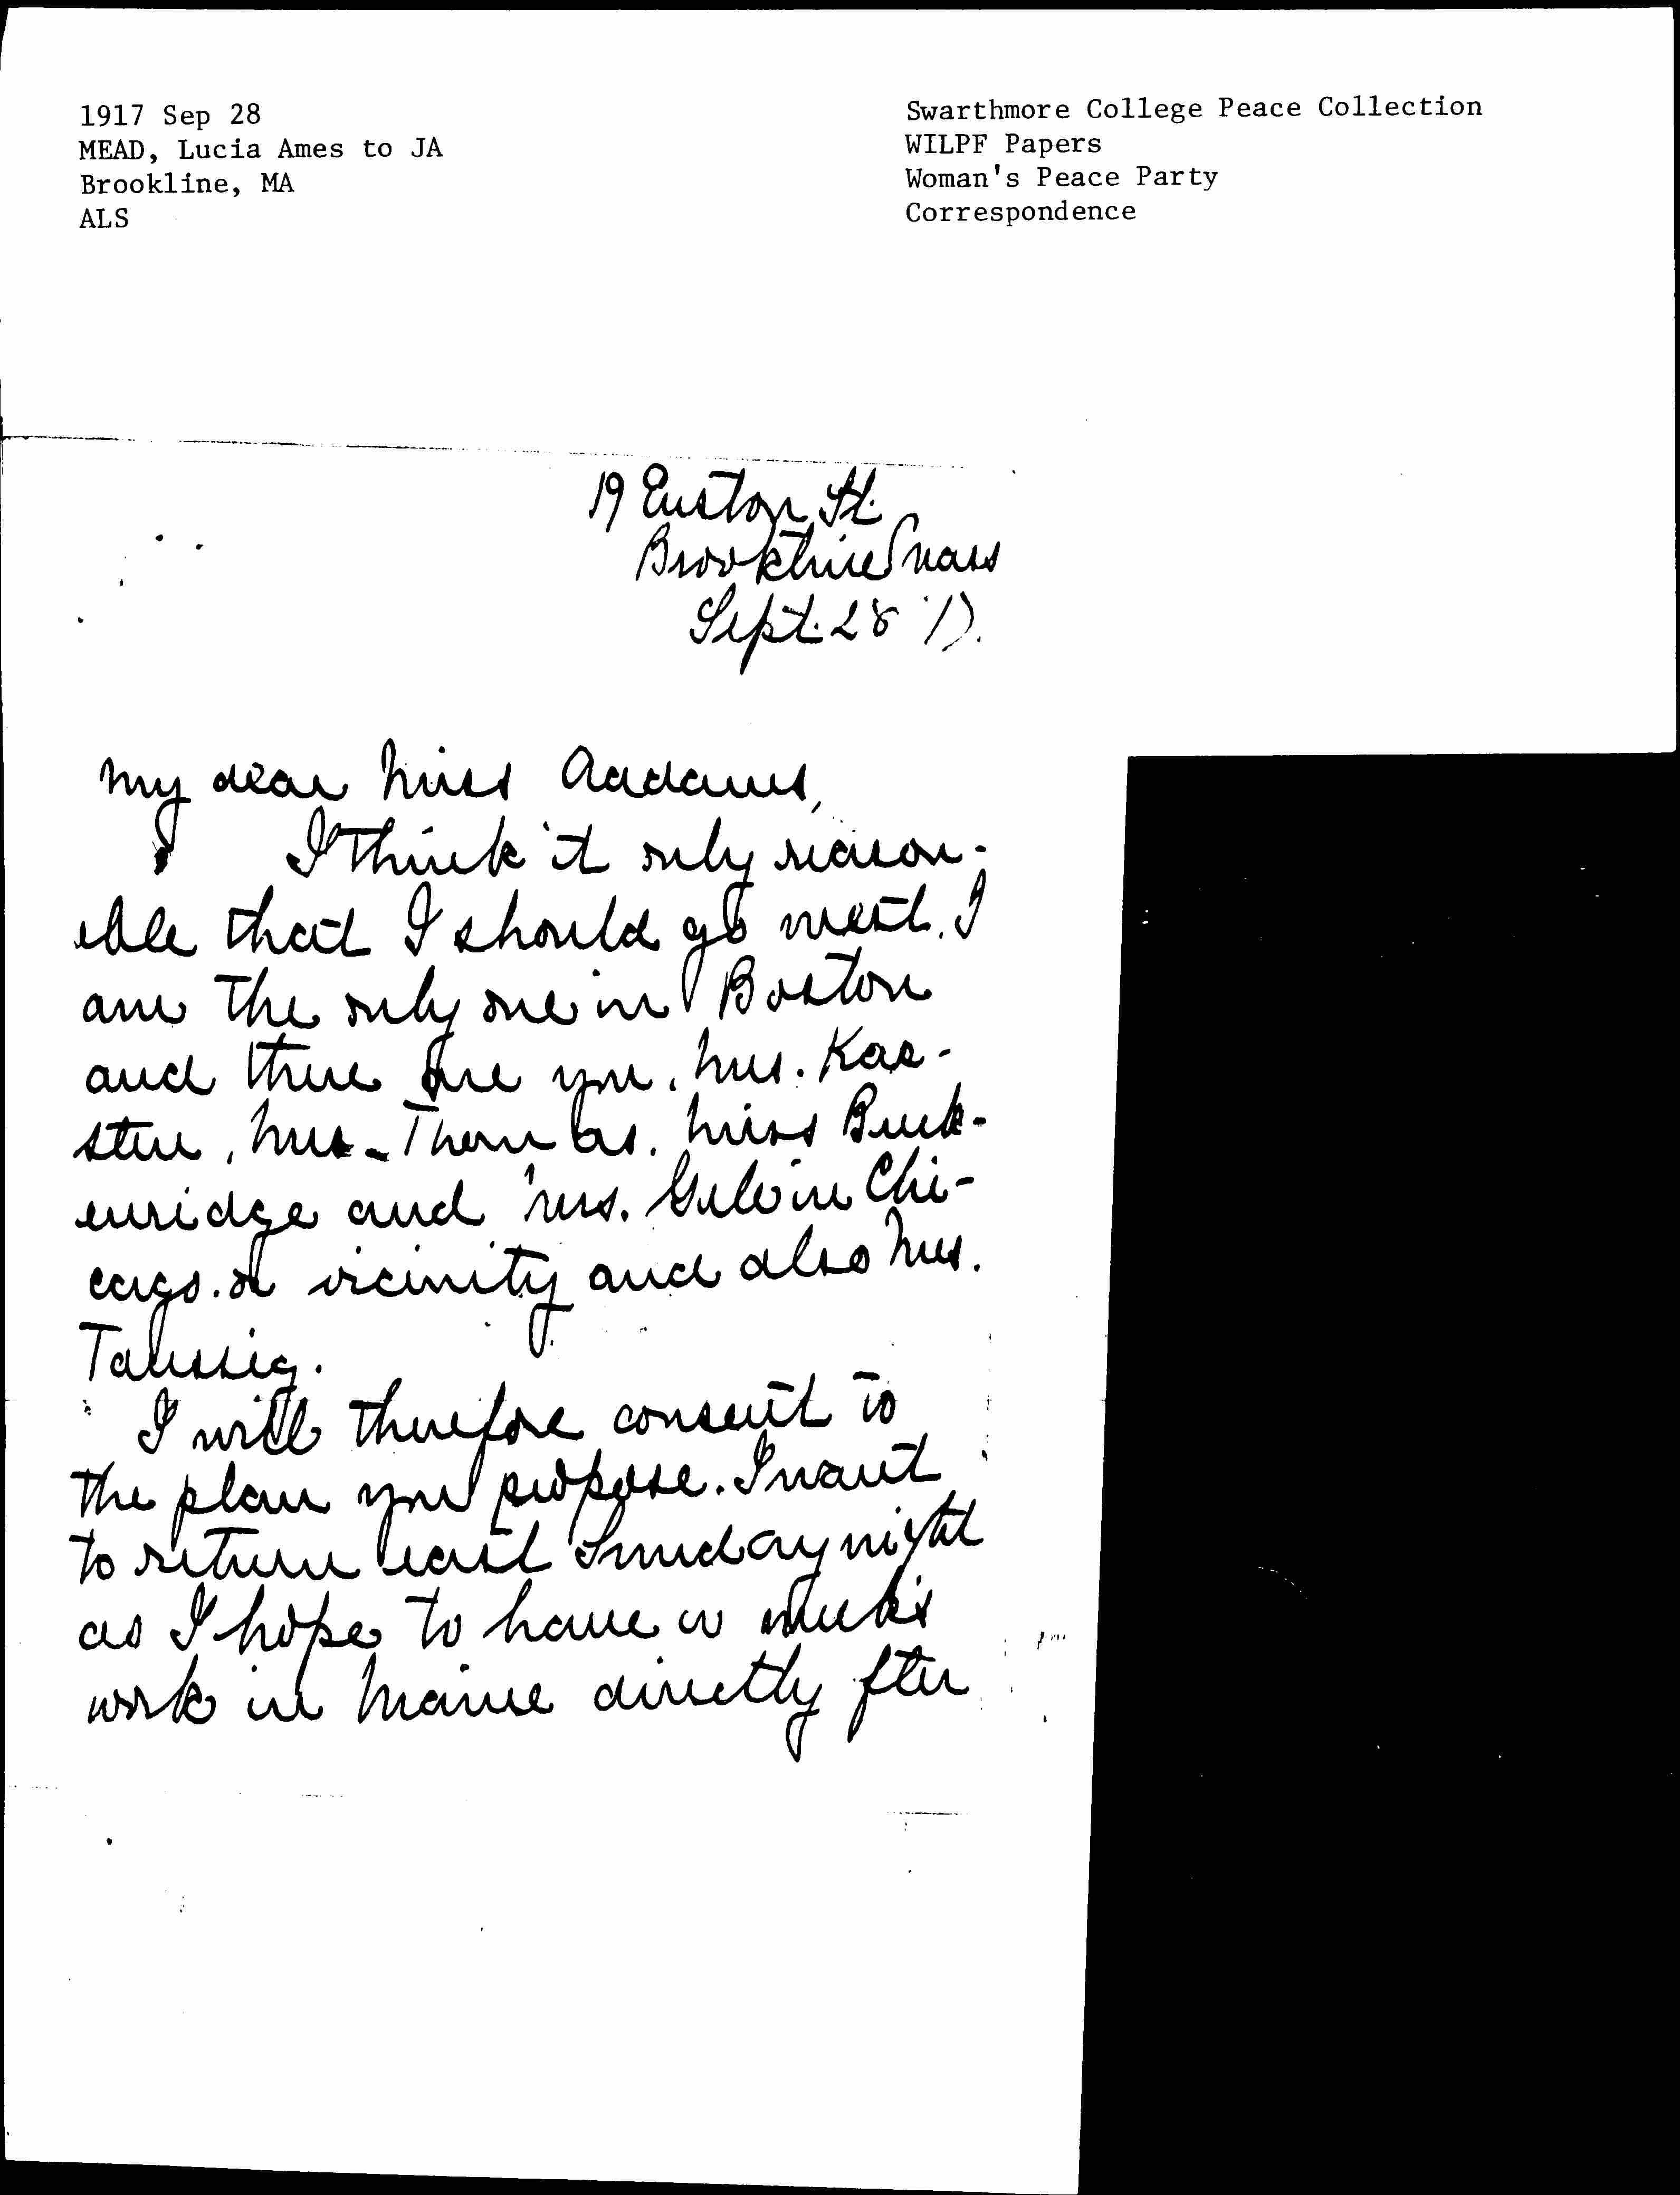 1917 Sep 28
MEAD, Lucia Ames to JA
Brookline, MA
ALS
Swarthmore College Peace Collection
WILPF Papers
Woman's Peace Party
Correspondence
19 Euston St.
Brookline Mass
Sept. 28 '17.
My dear Miss Addams,
I think it only reason-
able that I should go west. I
am the only one in Boston
and there are you, Mrs. Kar-
sten, Mrs. Thomas, Miss Breck-
enridge and Mrs. Gulvin Chi-
cago. or vicinity and also Mrs.
Taussig.
I will therefore consent to
the plan you propose. I want
to return east Sunday night
as I hope to have a week's
work in Maine directly fter